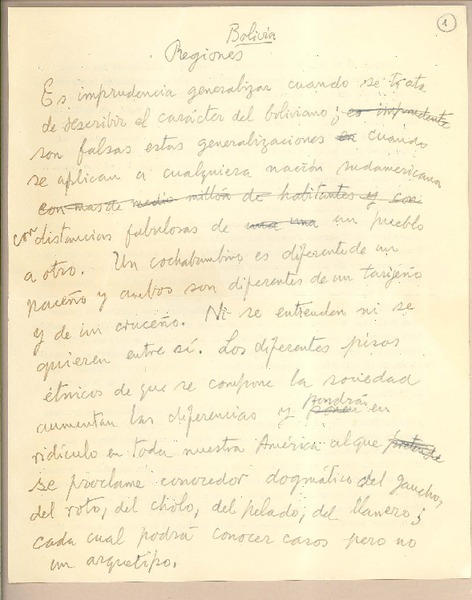 1
Bolivia
Regiones
Es imprudencia generalizar cuando se trata
de describir el carácter del boliviano; es imprudente
son falsas estas generalizaciones en cuando
se aplican a cualquiera nación sudamericana
con mas de medio millón de habitantes y con
con distancias fabulosas de una una un pueblo
a otro. Un cochabambino es diferente de un
paceño y ambos son diferentes de un tarijeño
y de un cruceño. Ni se entienden ni se
quieren entre sí. Los diferentes pisos
étnicos de que se compone la sociedad
aumentan las diferencias y pondrán en
ridículo en toda nuestra América al que pretende
se proclame conocedor dogmático del gaucho,
del roto, del cholo, del pelado, del llanero;
cada cual podrá conocer casos pero no
un arquetipo.